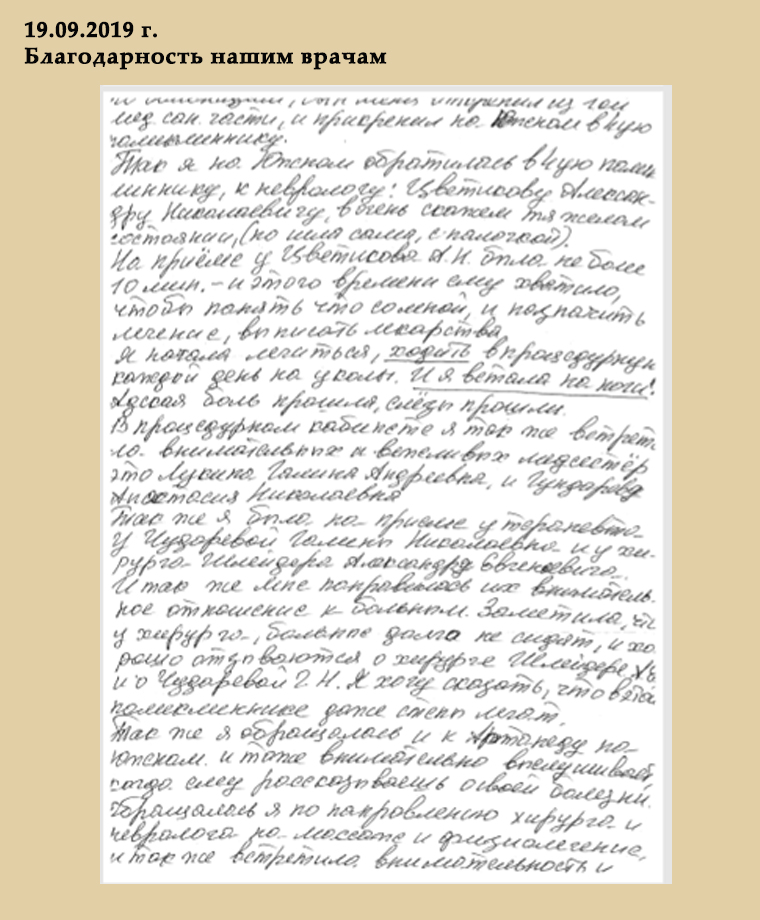 19.09.2019 г.
Благодарность нашим врачам
мед сан. части, и прикрепил на Южном в 4ую
поликлиннику.
Так я на Южном обратилась в 4ую поли
линнику, к неврологу: Цветикову Алексан-
дру Николаевичу, в очень скажем тяжелом
состоянии, (но шла сама, с палочкой).
На приёме у Цветикова А.Н. была не боле
10 мин. - и этого времени ему хватило,
чтобы понять что со мной, и назначить
лечение, выписать лекарства.
Я начала лечиться, ходить в процедурную
каждой день на уколы. И я встала на ноги!
Адская боль прошла, слёзы прошли.
В процедурном кабинете я так же встрет
ла внимательных и вежливых медсестёр
это Лукина Галина Андреевна, и Гундарова
Анастасия Николаевна
Так же я была на приеме у терапевта
у Чударевой Галины Николаевна и у хи-
рурга Шлейдера Александра Евгеневича.
И так же мне понравилось их вниматель
ное отношение к больным. Заметила, что
у хирурга, больные долга не сидят, и хо
рошо отзываются о хирурге Шлейдере
и о Чударевой Г.Н. Я хочу сказать, что в этой
поликлиннике даже стены лечат.
Так же я обращалась и к Артапеду на
Южном и тоже внимательно выслушивает
когда ему рассказываешь о своей болезни.
Обращалась я по направлению хирурга и
невролога на массаж и физиолечение,
и так же встретила внимательность и